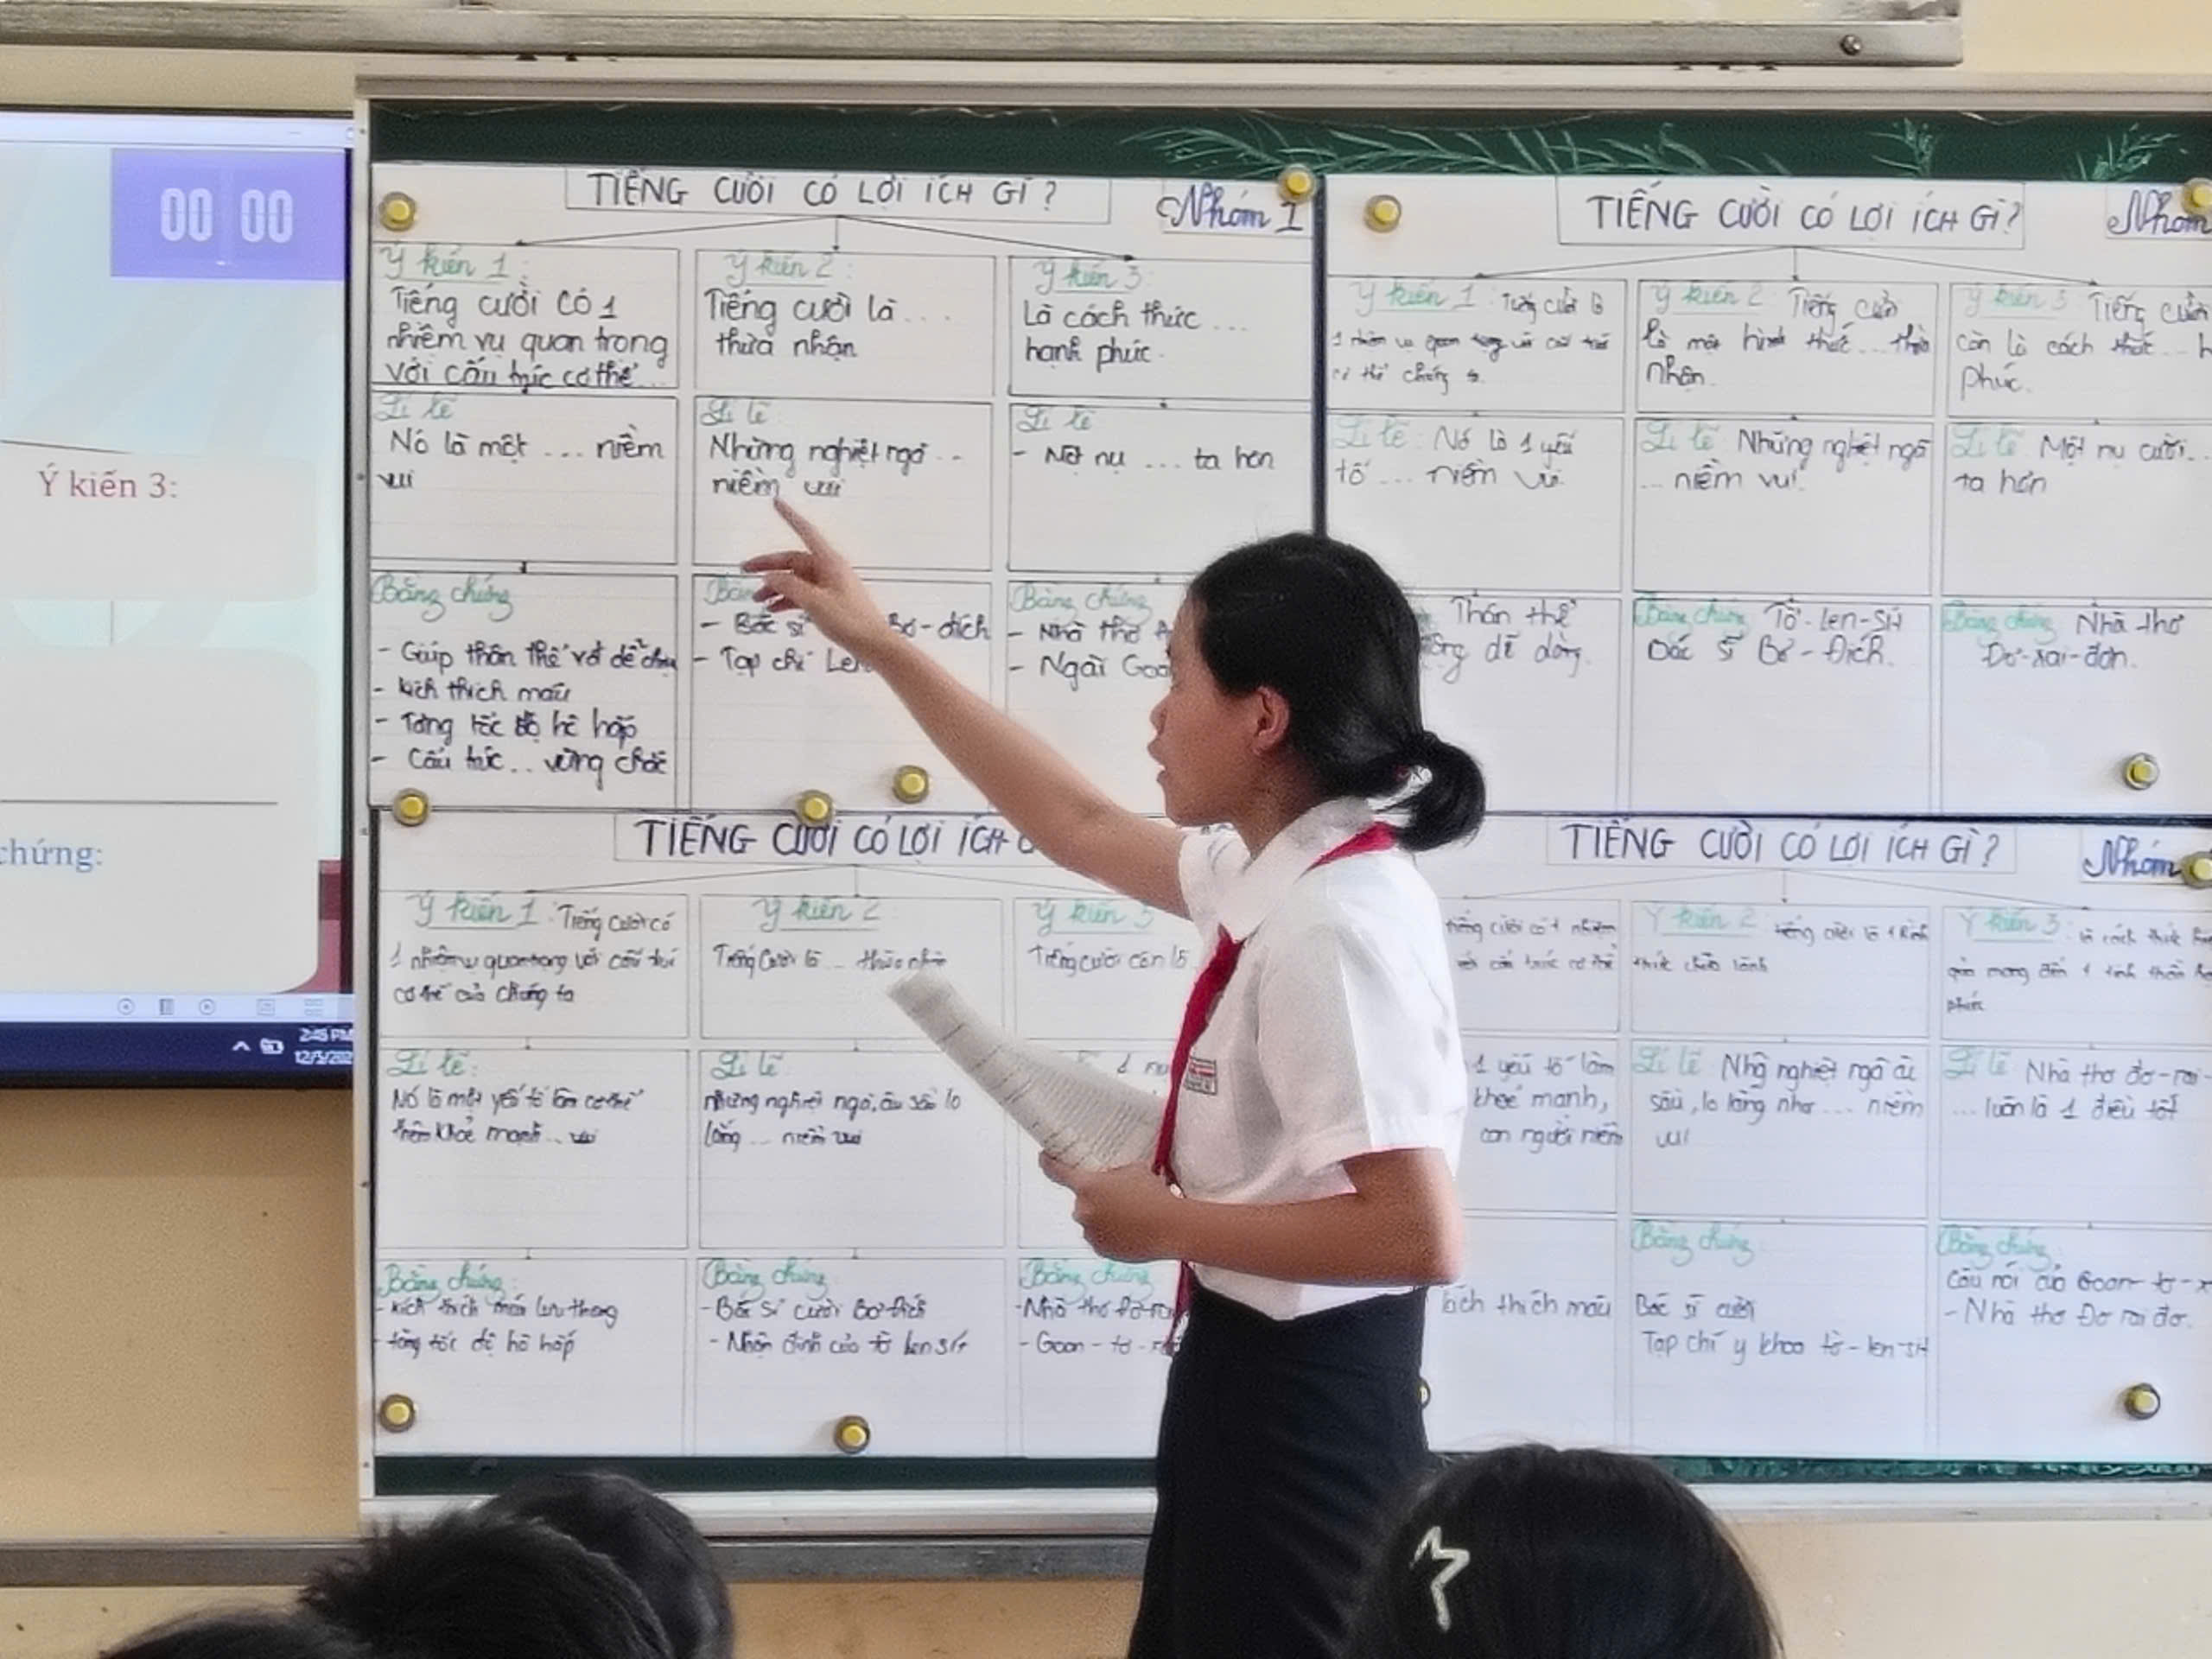 00 00
Ý kiến 3:
chứng:
2:45 PM
TIẾNG CƯỜI CÓ LỢI ÍCH GÌ?
Nhóm 1
Ý kiến 1:
Tiếng cười có 1
nhiệm vụ quan trọng
với cấu trúc cơ thể
Lí lẽ
Nó là một ... niềm
vui
Bằng chứng
- Giúp thân thể
- kích thích máu
- Tăng tốc độ hô hấp
- Cấu trúc .. vững chắc
Ý kiến 2:
Tiếng cười là ...
thừa nhận
Lí lẽ
Những nghiệt ngã ...
niềm vui
- Bác sĩ Bơ-đích
- Tạp chí
Ý kiến 3:
Là cách thức ...
hạnh phúc.
Lí lẽ
- Một nụ ... ta hơn
Bằng chứng
- Nhà thơ
- Ngài
TIẾNG CƯỜI CÓ LỢI ÍCH GÌ?
Nhóm
Ý kiến 1: Tiếng cười
Lí lẽ: Nó là 1 yếu
tố ... niềm vui
Thân thể
dễ dàng.
Ý kiến 2 Tiếng cười
là một hình thức ... thừa
nhận.
Lí lẽ Những nghiệt ngã
... niềm vui.
Bằng chứng Tờ-len-SH
Bác sĩ Bơ-Đích.
Ý kiến 3 Tiếng cười
còn là cách thức ...
phúc.
Lí lẽ Một nụ cười...
ta hơn
Bằng chứng Nhà thơ
TIẾNG CƯỜI CÓ LỢI ÍCH
Ý kiến 1: Tiếng cười có
1 nhiệm vụ quan trọng với cấu trúc
cơ thể của chúng ta
Lí lẽ:
Nó là một yếu tố làm cơ thể
thêm khoẻ mạnh ... vui
Bằng chứng:
- kích thích máu lưu thông
- tăng tốc độ hô hấp
Ý kiến 2:
Tiếng cười là ... thừa nhận
Lí lẽ:
những nghiệt ngã, âu sầu lo
lắng ... niềm vui
Bằng chứng
- Bác sĩ cười Bơ-Đích
- Nhận định của tờ len SH
Ý kiến 3
Tiếng cười còn là
Bằng chứng
- Nhà thơ
- Goan-tơ-
TIẾNG CƯỜI CÓ LỢI ÍCH GÌ?
Nhóm
tiếng cười có 1 nhiệm
cấu trúc cơ thể
1 yếu tố làm
khoẻ mạnh,
con người niềm
kích thích máu
Ý kiến 2: tiếng cười là 1 hình
thức chữa lành
Lí lẽ Những nghiệt ngã âu
sầu, lo lắng như ... niềm
vui
Bằng chứng
Bác sĩ cười
Tạp chí y khoa tờ-len-SH
Ý kiến 3: là cách thức
phúc
Lí lẽ Nhà thơ đơ-rai-
... luôn là 1 điều tốt
Bằng chứng:
Câu nói của Goan-tơ-
- Nhà thơ Đơ rai đơ.